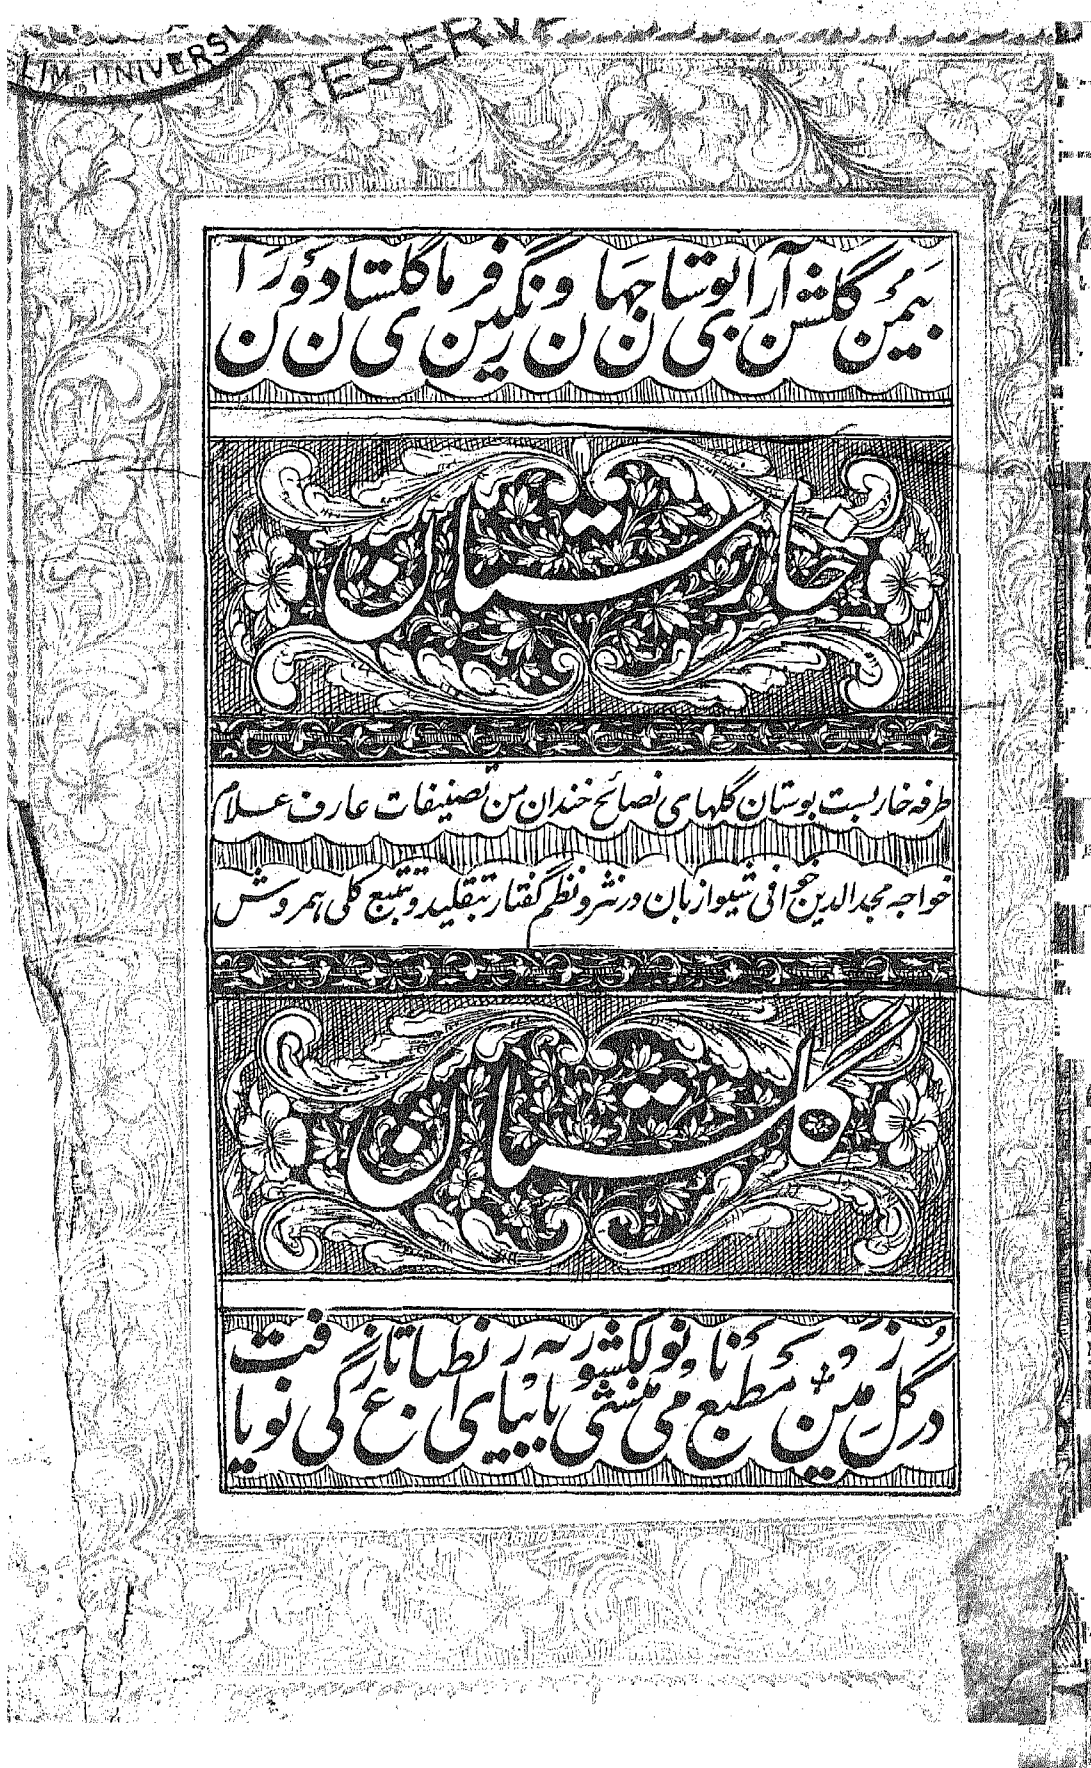 LIM UNIVERSI
RESERV
بیمن گلشن آرای بوستان جهان و رنگین فرمای گلستان دوران
خارستان
طرفه خاربست بوستان گلهای نصائح خندان من تصنیفات عارف علام
خواجه مجد الدین خوافی شیوازبان در نثر و نظم گفتار بتقلید و تتبع کلی همروش
گلستان
در گل زمین مطبع نامی منشی نولکشور بآبیاری انطباع تازگی نو یافت